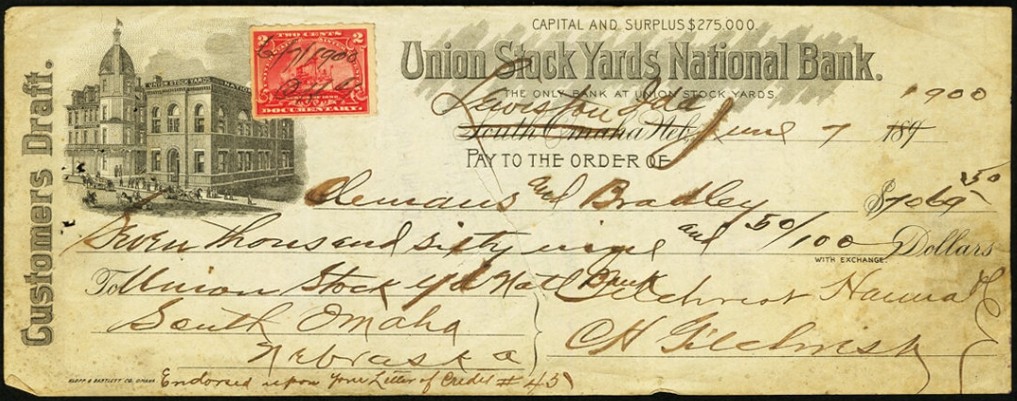 CAPITAL AND SURPLUS $275.000.
Union Stock Yards National Bank.
THE ONLY BANK AT UNION STOCK YARDS.
Customers Draft.
UNION STOCK YARDS NATIONAL
TWO CENTS
2 2
1900
DOCUMENTARY.
Lewiston Ida 1900
South Omaha Neb. June 7 189
PAY TO THE ORDER OF
Clemans and Bradley $7069 50
Seven thousand sixty nine and 50/100 Dollars
WITH EXCHANGE.
To Union Stock Yds Natl Bank Gilchrist Hanna
South Omaha C H Gilchrist
Nebraska
KLOPP & BARTLETT CO. OMAHA
Endorsed upon your Letter of Credit # 45